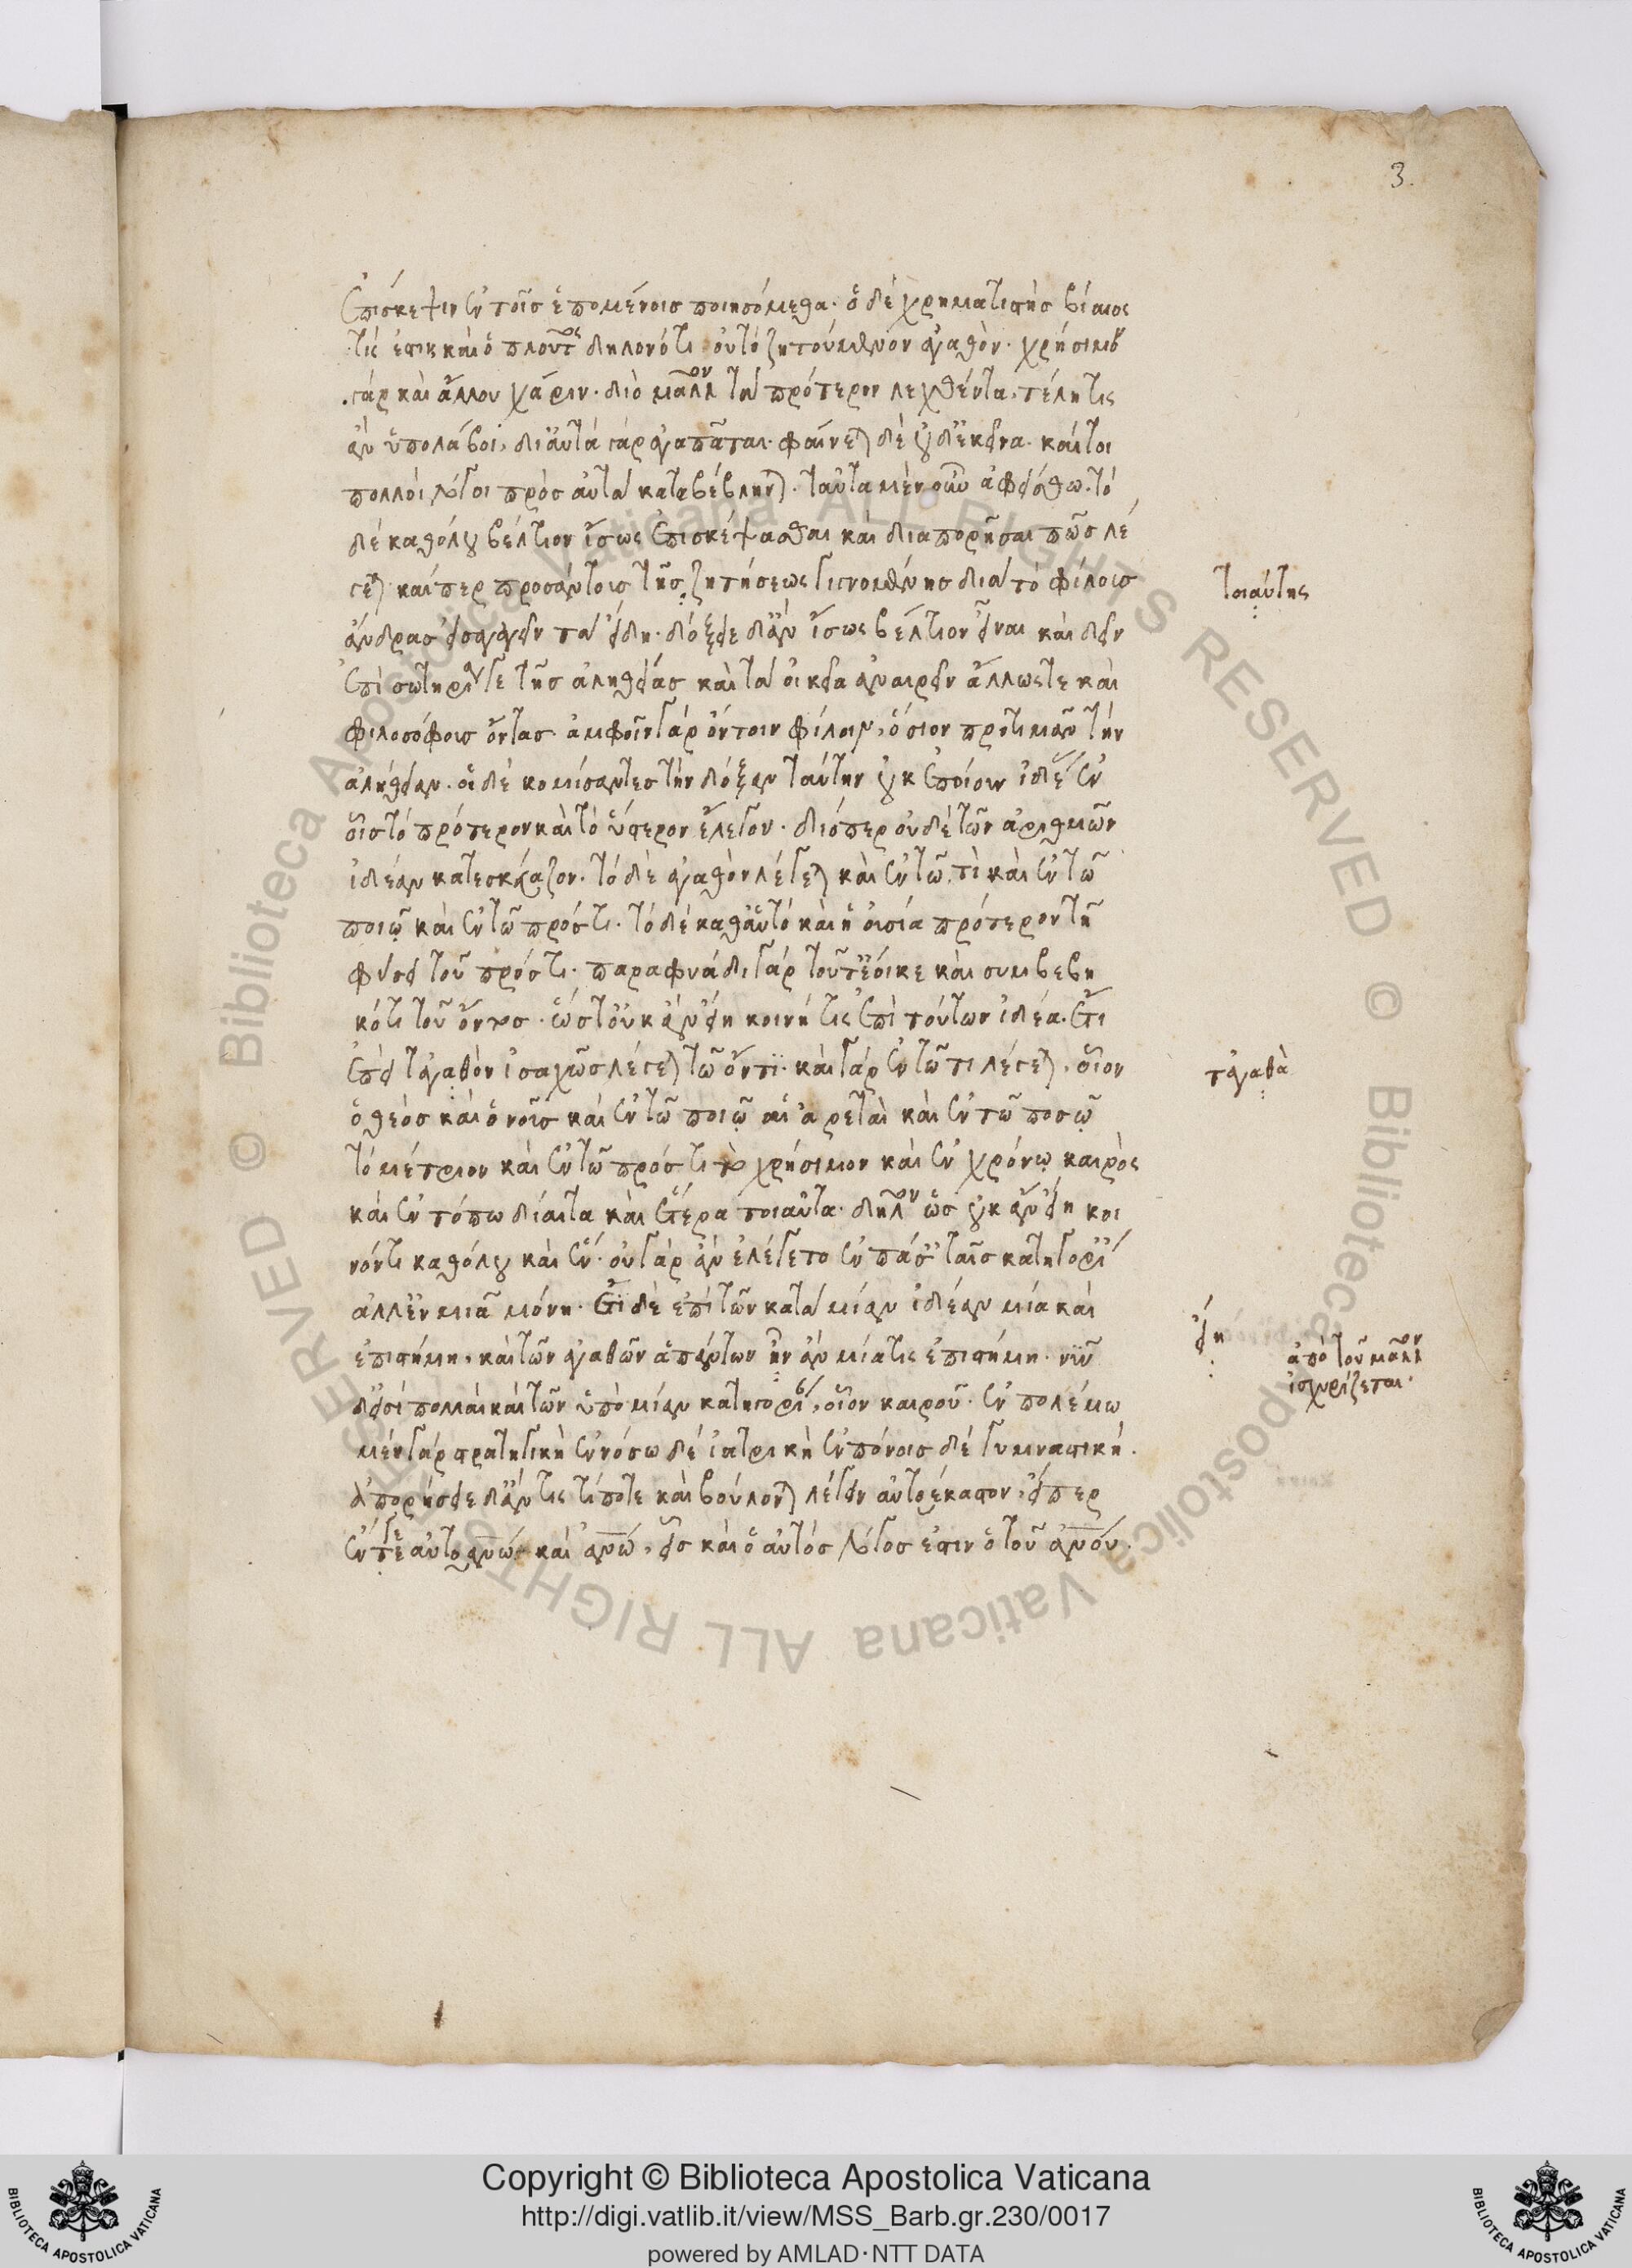 3.
ἐπίσκεψιν ἐν τοῖς ἑπομένοις ποιησόμεθα. ὁ δὲ χρηματιστὴς βίαιος
τίς ἐστι καὶ ὁ πλοῦτος δηλονότι οὐ τὸ ζητούμενον ἀγαθόν. χρήσιμον
γὰρ καὶ ἄλλου χάριν. διὸ μᾶλλον τὰ πρότερον λεχθέντα, τέλη τις
ἂν ὑπολάβοι, δι' αὐτὰ γὰρ ἀγαπᾶται. φαίνεται δὲ οὐδ' ἐκεῖνα. καίτοι
πολλοὶ λόγοι πρὸς αὐτὰ καταβέβληνται. ταῦτα μὲν οὖν ἀφείσθω. τὸ
δὲ καθόλου βέλτιον ἴσως ἐπισκέψασθαι καὶ διαπορῆσαι πῶς λέ
γεται. καίπερ προσάντους τῆς ζητήσεως γινομένης διὰ τὸ φίλους
τοιαύτης
ἄνδρας εἰσαγαγεῖν τὰ εἴδη. δόξειε δ' ἂν ἴσως βέλτιον εἶναι καὶ δεῖν
ἐπὶ σωτηρίᾳ γε τῆς ἀληθείας καὶ τὰ οἰκεῖα ἀναιρεῖν ἄλλως τε καὶ
φιλοσόφους ὄντας. ἀμφοῖν γὰρ ὄντοιν φίλοιν, ὅσιον προτιμᾶν τὴν
ἀλήθειαν. οἱ δὲ κομίσαντες τὴν δόξαν ταύτην οὐκ ἐποίουν ἰδέας ἐν
οἷς τὸ πρότερον καὶ τὸ ὕστερον ἔλεγον. διόπερ οὐδὲ τῶν ἀριθμῶν
ἰδέαν κατεσκεύαζον. τὸ δὲ ἀγαθὸν λέγεται καὶ ἐν τῶ τὶ καὶ ἐν τῶ
ποιῷ καὶ ἐν τῶ πρός τι. τὸ δὲ καθ' αὑτὸ καὶ ἡ οὐσία πρότερον τῆ
φύσει τοῦ πρός τι. παραφυάδι γὰρ τοῦτ' ἔοικε καὶ συμβεβη
κότι τοῦ ὄντος. ὥστ' οὐκ ἂν εἴη κοινή τις ἐπὶ τούτων ἰδέα. ἔτι
ἐπεὶ τἀγαθὸν ἰσαχῶς λέγεται τῶ ὄντι. καὶ γὰρ ἐν τῶ τι λέγεται, οἷον
τἀγαθὰ
ὁ θεὸς καὶ ὁ νοῦς καὶ ἐν τῶ ποιῷ αἱ ἀρεταὶ καὶ ἐν τῶ ποσῷ
τὸ μέτριον καὶ ἐν τῶ πρός τι τὸ χρήσιμον καὶ ἐν χρόνῳ καιρὸς
καὶ ἐν τόπω δίαιτα καὶ ἕτερα τοιαῦτα. δῆλον ὡς οὐκ ἂν εἴη κοι
νόν τι καθόλου καὶ ἕν. οὐ γὰρ ἂν ἐλέγετο ἐν πάσαις ταῖς κατηγορίαις
ἀλλ' ἐν μιᾶ μόνη. ἔτι δὲ ἐπὶ τῶν κατὰ μίαν ἰδέαν μία καὶ
ἐπιστήμη, καὶ τῶν ἀγαθῶν ἁπάντων ἦν ἂν μία τις ἐπιστήμη. νῦν
εἴη
ἀπὸ τοῦ μᾶλλον
ἰσχυρίζεται.
δ' εἰσὶ πολλαὶ καὶ τῶν ὑπὸ μίαν κατηγορίαν, οἷον καιροῦ. ἐν πολέμω
μὲν γὰρ στρατηγικὴ ἐν νόσω δὲ ἰατρικὴ ἐν πόνοις δὲ γυμναστική.
ἀπορήσειε δ' ἄν τις τί ποτε καὶ βούλονται λέγειν αὐτοέκαστον, εἴπερ
ἔν γε τε αὐτοανω καὶ ἀνω, εἷς καὶ ὁ αὐτὸς λόγος ἐστιν ὁ τοῦ ἀνου.